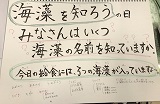 海藻を知ろうの日
みなさんはいくつ
海藻の名前を知っていますか
今日の給食には、3つの海藻が入っています。